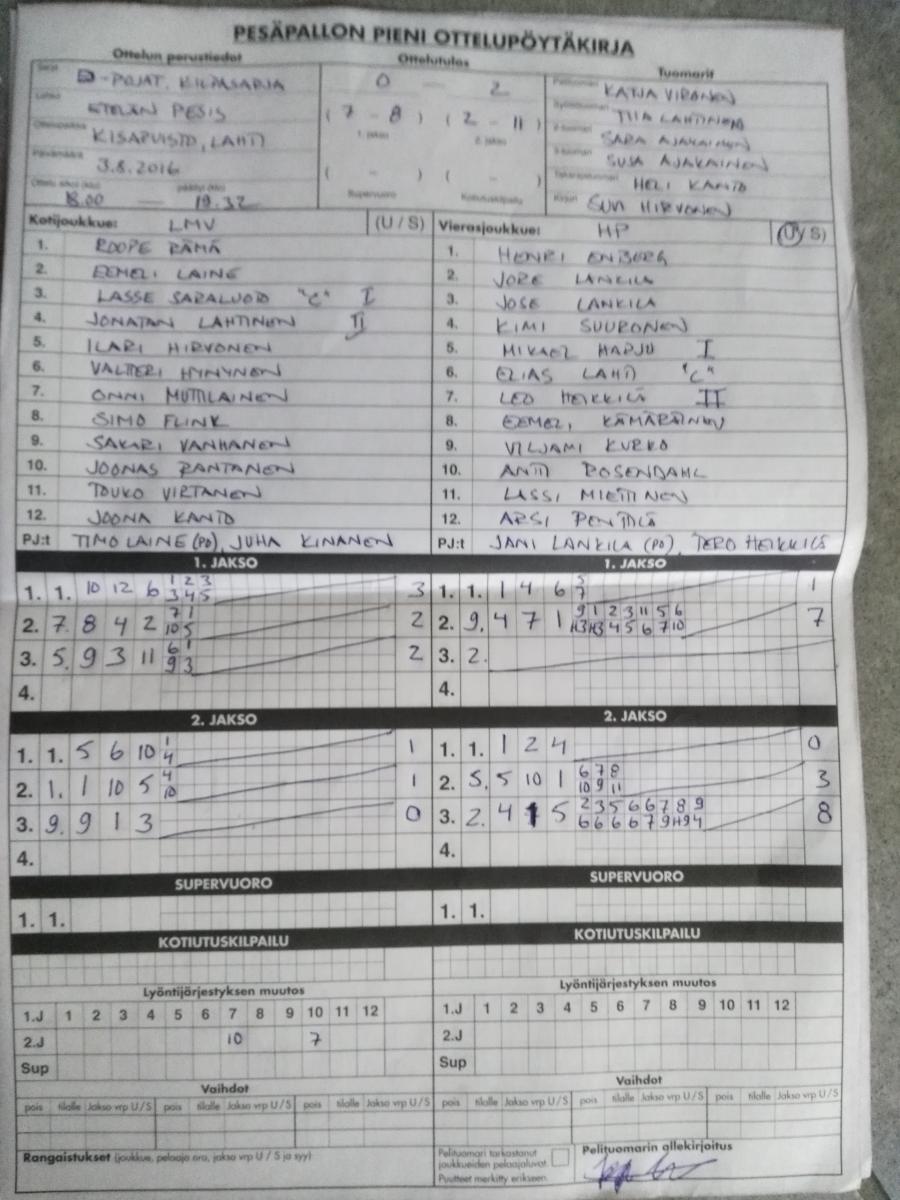 PESÄPALLON PIENI OTTELUPÖYTÄKIRJA
Ottelun perustiedot Ottelutulos Tuomarit
Sarja D-POJAT, KILPASARJA 0 – 2 Pelituomari KATJA VIRONEN
Lohko ETELÄN PESIS (7 - 8) (2 - 11) Syöttötuomari TIIA LAHTINEN
1. jakso 2. jakso
Ottelupaikka KISAPUISTO, LAHTI 2-tuomari SARA AJAKAINEN
Päivämäärä 3.8.2016 ( - ) ( - ) 3-tuomari SUSA AJAKAINEN
Ottelu alkoi (klo) päättyi (klo) Supervuoro Kotiutuskilpailu Takarajatuomari HELI KANTO
18.00 — 19.32 Kirjuri SUVI HIRVONEN
Kotijoukkue: LMV (U / S) Vierasjoukkue: HP (U / S)
1. ROOPE RÄMÄ 1. HENRI ENBERG
2. EEMELI LAINE 2. JORE LANKILA
3. LASSE SARALUOTO "C" I 3. JOSE LANKILA
4. JONATAN LAHTINEN II 4. KIMI SUURONEN
5. ILARI HIRVONEN 5. MIKAEL HARJU I
6. VALTTERI HYNYNEN 6. ELIAS LAHTI "C"
7. ONNI MUTTILAINEN 7. LEO HEIKKILÄ II
8. SIMO FLINK 8. EEMELI KÄMÄRÄINEN
9. SAKARI VANHANEN 9. VILJAMI KURKO
10. JOONAS RANTANEN 10. ANTTI ROSENDAHL
11. TOUKO VIRTANEN 11. LASSI MIETTINEN
12. JOONA KANTO 12. ARSI PENTTILÄ
PJ:t TIMO LAINE (PO), JUHA KINANEN PJ:t JANI LANKILA (PO), TERO HEIKKILÄ
1. JAKSO 1. JAKSO
1 2 3 5
1. 1. 10 12 6 3 4 5 3 1. 1. 1 4 6 7 1
7 1 9 1 2 3 11 5 6
2. 7. 8 4 2 10 5 2 2. 9. 4 7 1 4 5 6 7 10 7
6 1
3. 5. 9 3 11 9 3 2 3. 2.
4. 4.
2. JAKSO 2. JAKSO
1
1. 1. 5 6 10 4 1 1. 1. 1 2 4 0
4 6 7 8
2. 1. 1 10 5 10 1 2. 5. 5 10 1 10 9 11 3
2 3 5 6 6 7 8 9
3. 9. 9 1 3 0 3. 2. 4 1 5 6 6 6 6 7 9 8
4. 4.
SUPERVUORO SUPERVUORO
1. 1. 1. 1.
KOTIUTUSKILPAILU KOTIUTUSKILPAILU
Lyöntijärjestyksen muutos Lyöntijärjestyksen muutos
1.J 1 2 3 4 5 6 7 8 9 10 11 12 1.J 1 2 3 4 5 6 7 8 9 10 11 12
2.J 10 7 2.J
Sup Sup
Vaihdot Vaihdot
pois tilalle Jakso vrp U / S pois tilalle Jakso vrp U / S pois tilalle Jakso vrp U / S pois tilalle Jakso vrp U / S pois tilalle Jakso vrp U / S pois tilalle Jakso vrp U / S
Rangaistukset (joukkue, pelaaja nro, jakso vrp U / S ja syy) Pelituomari tarkastanut joukkueiden pelaajaluvat. Pelituomarin allekirjoitus
Puutteet merkitty erikseen.